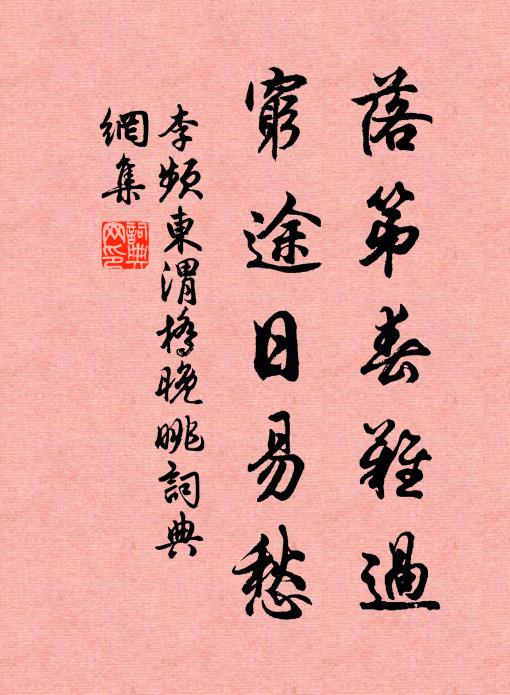 落第春難過
窮途日易愁
李頻東渭橋晚眺詞典
網集
詞典
网印